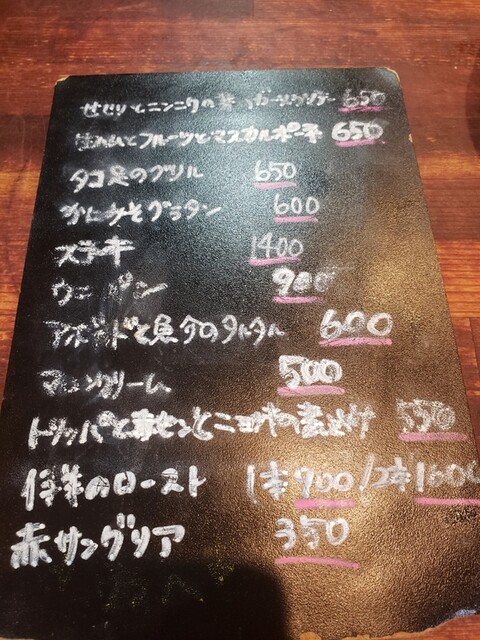 せせりとニンニクの芽 ガーリックソテー 650
生ハムとフルーツとマスカルポーネ 650
タコ足のグリル 650
かにみそグラタン 600
ステーキ 1400
ウニ パン 900
アボカドと魚介のタルタル 600
マロンクリーム 500
トリッパと赤センとニョッキの煮込み 550
仔羊のロースト 1本 900/2本 1600
赤サングリア 350